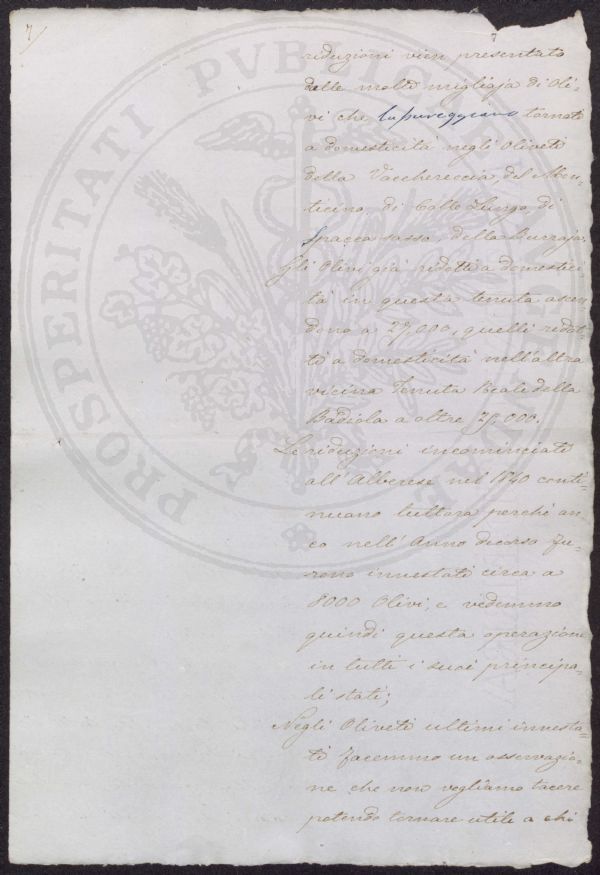 7
7
riduzioni vien presentato
dalle molti migliaja di Oli-
vi che lussureggiano tornati
a domesticità negli Oliveti
della Vacchereccia, del Mon-
ticino di Colle Lungo, di
Spacca sasso, della Burraja.
Gli Olivi già ridotti a domestici
tà in questa tenuta ascen
dono a 27,000, quelli ridot-
ti a domesticità nell'altra
vicina Tenuta Reale della
Badiola a oltre 25.000.
Le riduzioni incominciate
all'Alberese nel 1840 conti-
nuano tuttora perchè an
co nell'Anno decorso fu-
rono innestati circa a
8000 Olivi, e vedemmo
quindi questa operazione
in tutti i suoi principa-
li stati;
Negli Oliveti ultimi innesta-
ti facemmo un osservazio-
ne che non vogliamo tacere
potendo tornare utile a chi
PROSPERITATI PUBLICAE AUGENDAE